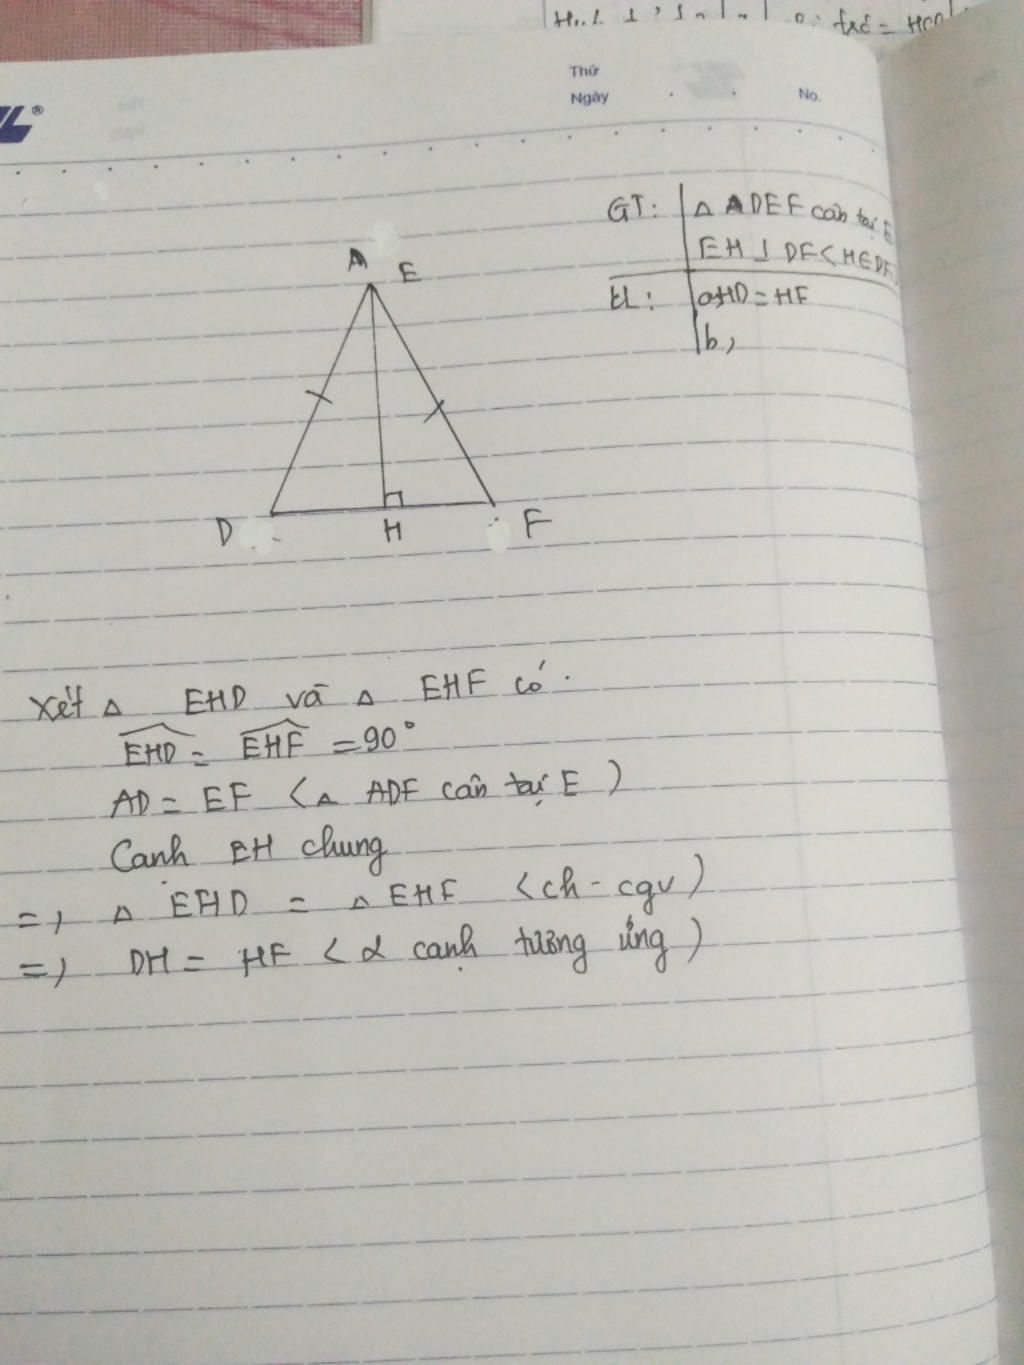 Thứ
Ngày
No.
GT: Δ ADEF cân tại E
EH ⊥ DF < H∈DF
KL: a, HD = HF
b,
A E
D H F
Xét Δ EHD và Δ EHF có.
EHD = EHF = 90°
AD = EF < Δ ADF cân tại E )
Canh EH chung
=) Δ EHD = Δ EHF < ch - cgv )
=) DH = HF < 2 cạnh tương ứng )